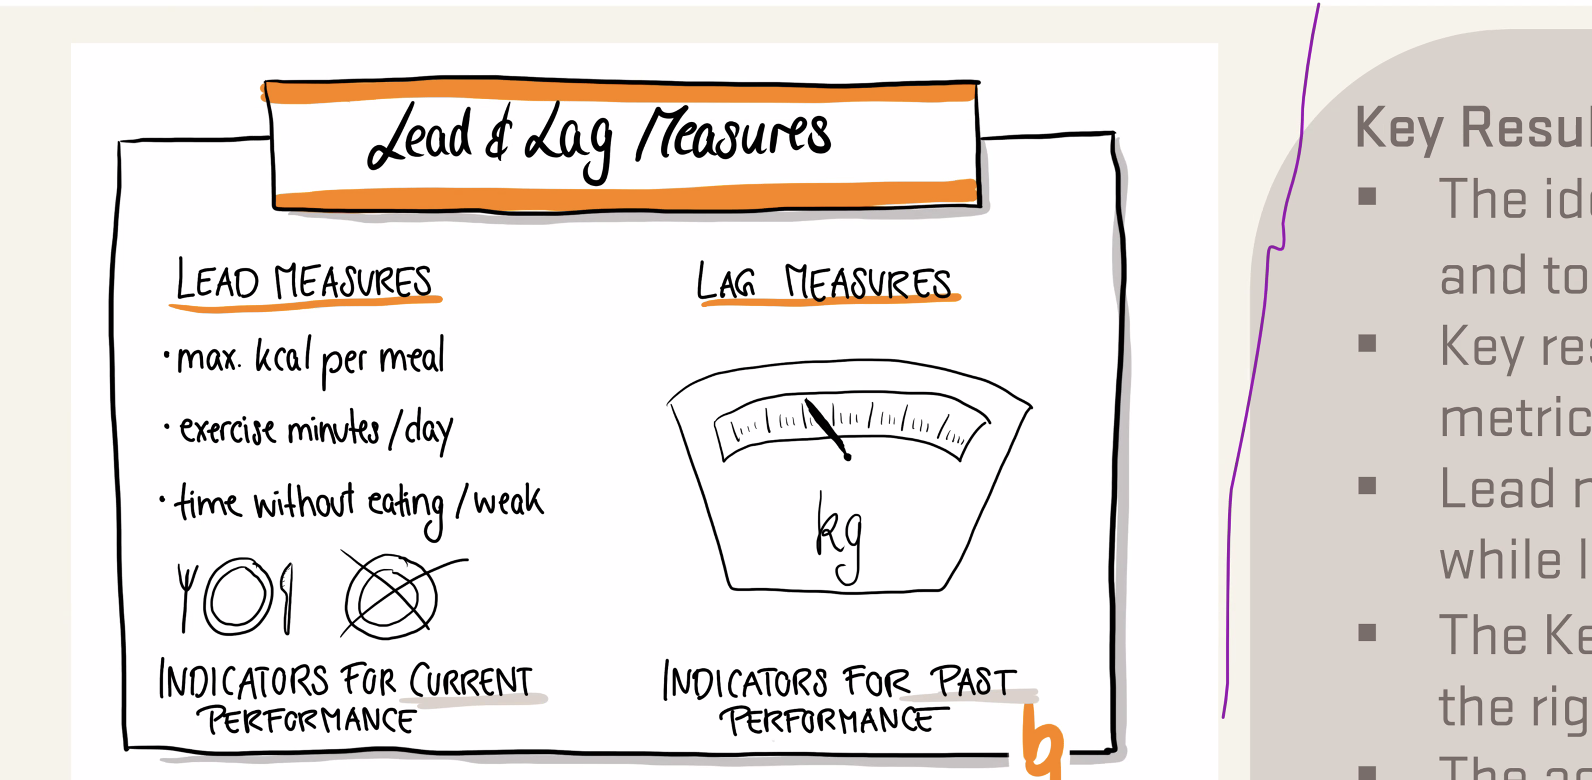 Lead & Lag Measures
LEAD MEASURES
• max. kcal per meal
• exercise minutes / day
• time without eating / weak
INDICATORS FOR CURRENT
PERFORMANCE
LAG MEASURES
kg
INDICATORS FOR PAST
PERFORMANCE
b
Key Resul
▪ The ide
and to
▪ Key res
metric
▪ Lead
while
▪ The Ke
the rig
▪ The